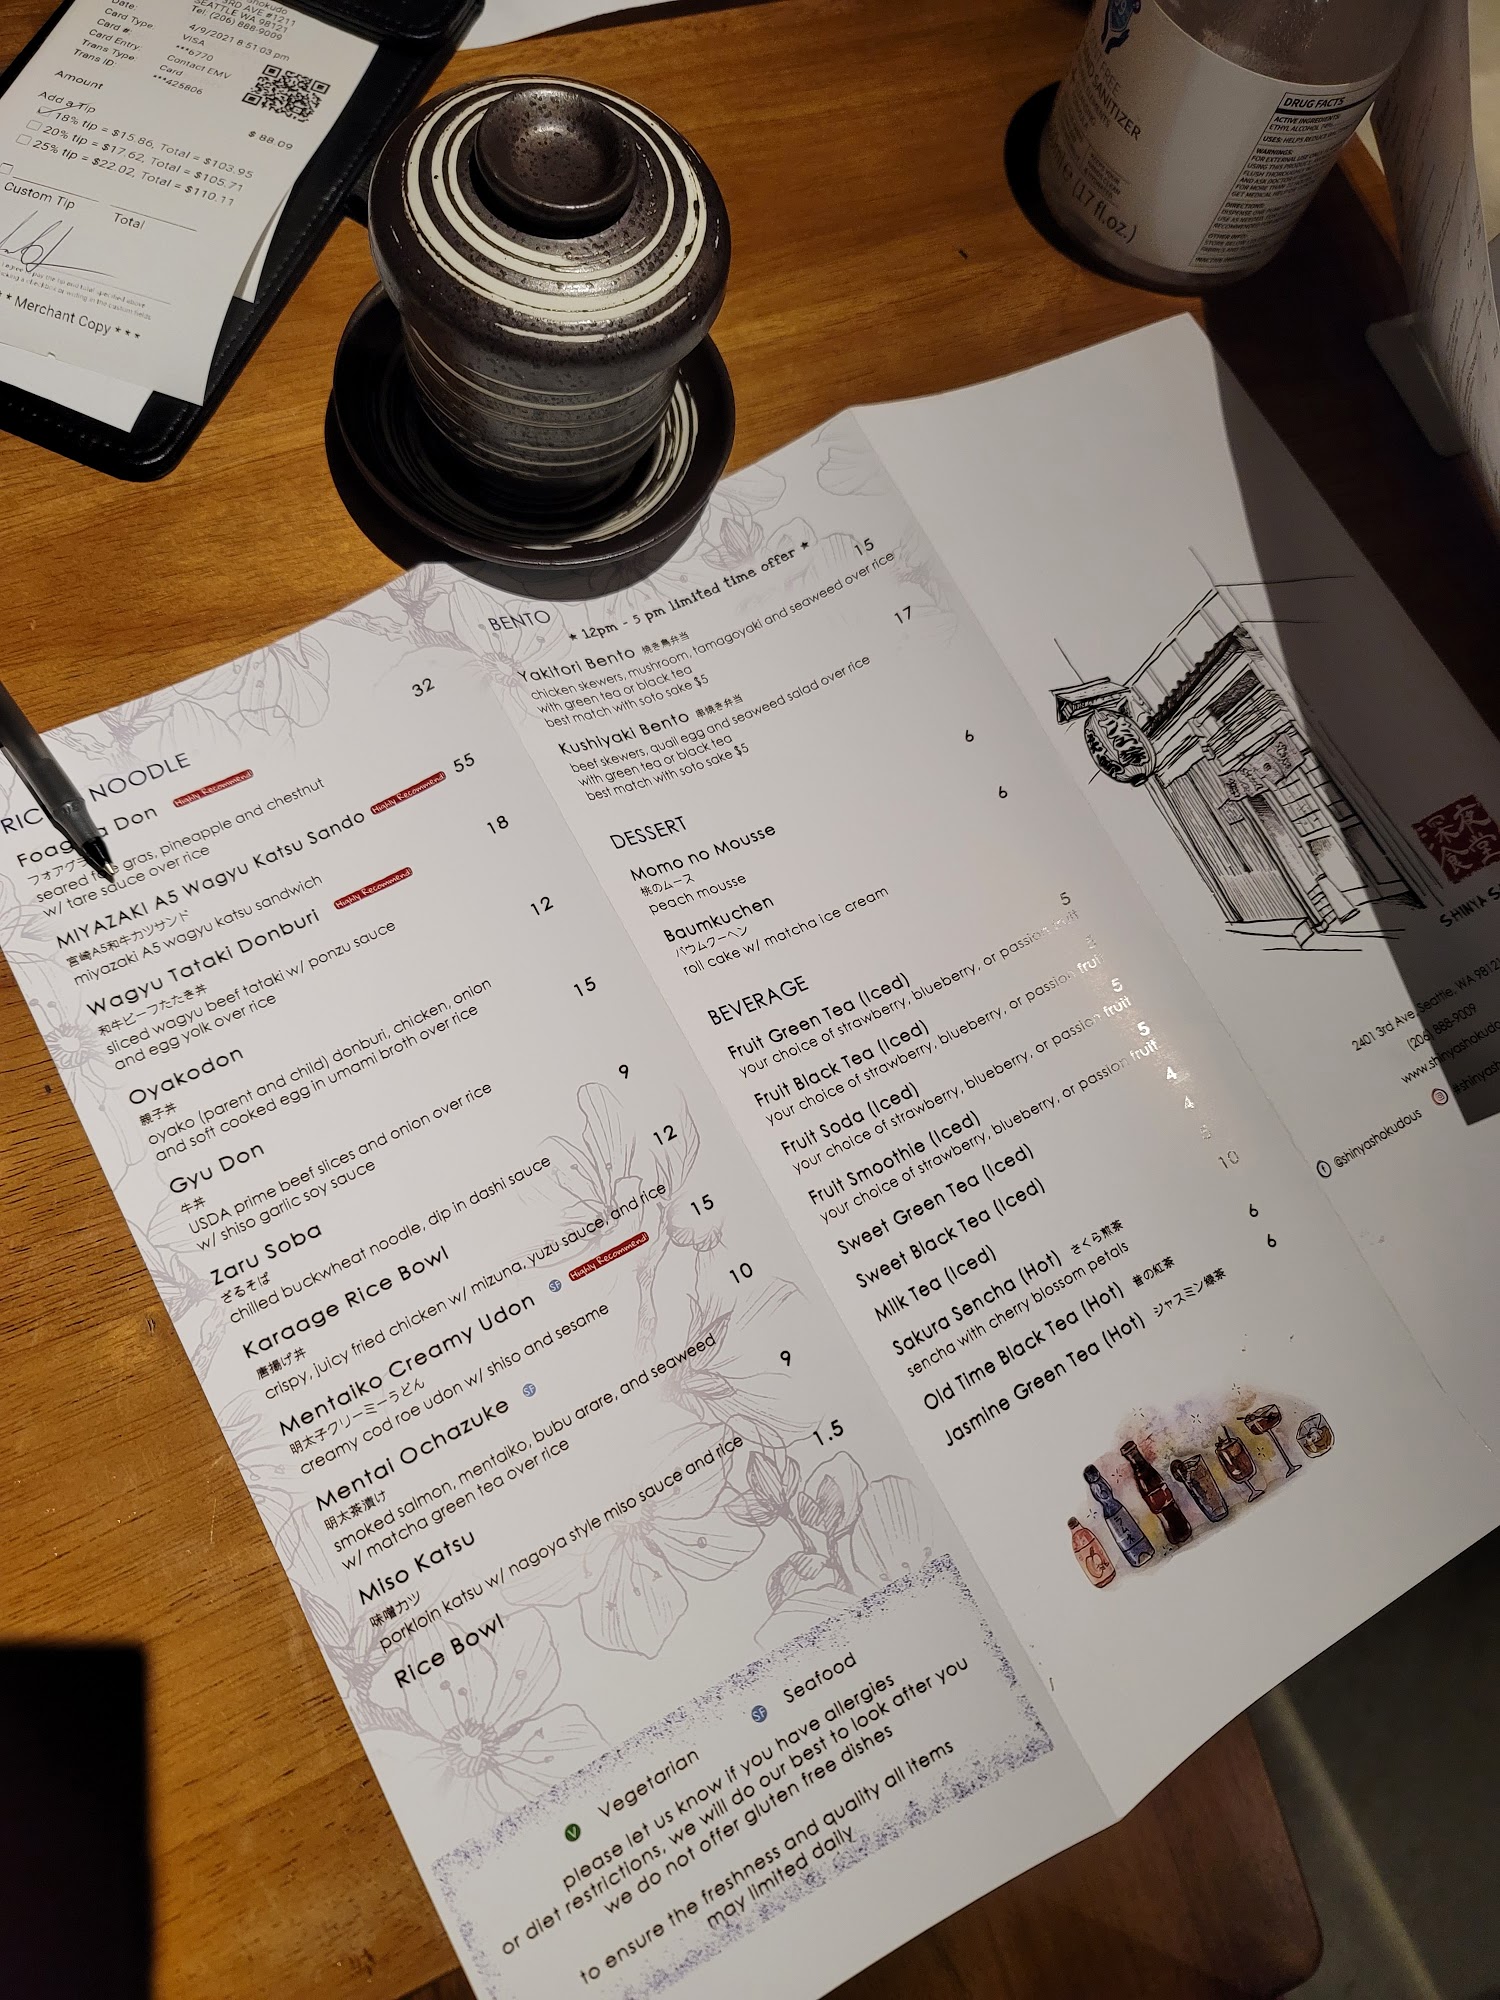 3RD AVE #1211
SEATTLE WA 98121
Tel. (206) 888-9009
Date: 4/9/2021 8:51:03 pm
Card Type: VISA
Card #: ***6770
Card Entry: Contact EMV
Trans Type: Card
Trans ID: ***425806
Amount $ 88.09
Add a Tip
18% tip = $15.86, Total = $103.95
20% tip = $17.62, Total = $105.71
25% tip = $22.02, Total = $110.11
Custom Tip Total
* * Merchant Copy * * *
SANITIZER
(17 fl.oz.)
DRUG FACTS
ACTIVE INGREDIENTS:
ETHYL ALCOHOL
WARNINGS:
NOODLE
Don Highly Recommend 32
seared gras, pineapple and chestnut
w/ tare sauce over rice
MIYAZAKI A5 Wagyu Katsu Sando Highly Recommend 55
宮崎A5和牛カツサンド
miyazaki A5 wagyu katsu sandwich
Wagyu Tataki Donburi Highly Recommend 18
和牛ビーフたたき丼
sliced wagyu beef tataki w/ ponzu sauce
and egg yolk over rice
Oyakodon 12
親子丼
oyako (parent and child) donburi, chicken, onion
and soft cooked egg in umami broth over rice
Gyu Don 15
牛丼
USDA prime beef slices and onion over rice
w/ shiso garlic soy sauce
Zaru Soba 9
ざるそば
chilled buckwheat noodle, dip in dashi sauce
Karaage Rice Bowl 12
唐揚げ丼
crispy, juicy fried chicken w/ mizuna, yuzu sauce, and rice
Mentaiko Creamy Udon SF Highly Recommend 15
明太子クリーミーうどん
creamy cod roe udon w/ shiso and sesame
Mentai Ochazuke SF 10
明太茶漬け
smoked salmon, mentaiko, bubu arare, and seaweed
w/ matcha green tea over rice
Miso Katsu 9
味噌カツ
porkloin katsu w/ nagoya style miso sauce and rice
Rice Bowl 1.5
V Vegetarian SF Seafood
please let us know if you have allergies
or diet restrictions, we will do our best to look after you
we do not offer gluten free dishes
to ensure the freshness and quality all items
may limited daily
BENTO
* 12pm - 5 pm limited time offer *
Yakitori Bento 焼き鳥弁当 15
chicken skewers, mushroom, tamagoyaki and seaweed over rice
with green tea or black tea
best match with soto sake $5
Kushiyaki Bento 串焼き弁当 17
beef skewers, quail egg and seaweed salad over rice
with green tea or black tea
best match with soto sake $5
DESSERT
Momo no Mousse 6
桃のムース
peach mousse
Baumkuchen 6
バウムクーヘン
roll cake w/ matcha ice cream
BEVERAGE
Fruit Green Tea (Iced) 5
your choice of strawberry, blueberry, or passion fruit
Fruit Black Tea (Iced)
your choice of strawberry, blueberry, or passion fruit
Fruit Soda (Iced) 5
your choice of strawberry, blueberry, or passion fruit
Fruit Smoothie (Iced) 5
your choice of strawberry, blueberry, or passion fruit
Sweet Green Tea (Iced) 4
Sweet Black Tea (Iced) 4
Milk Tea (Iced)
Sakura Sencha (Hot) さくら煎茶 10
sencha with cherry blossom petals
Old Time Black Tea (Hot) 昔の紅茶 6
Jasmine Green Tea (Hot) ジャスミン緑茶 6
深夜
食堂
SHINYA
2401 3rd Ave, Seattle, WA 98121
(206) 888-9009
@shinyashokudous